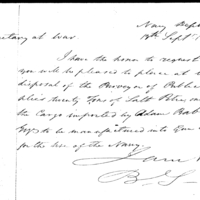 Navy
Sept
at War
I have the honor to request
you will be pleased to place at
disposal of the Purveyor of Public
plies twenty Tons of Salt Petre,
the Cargo imported by Adam Bab
to be manufactured into
for the use of the Navy.
B. S